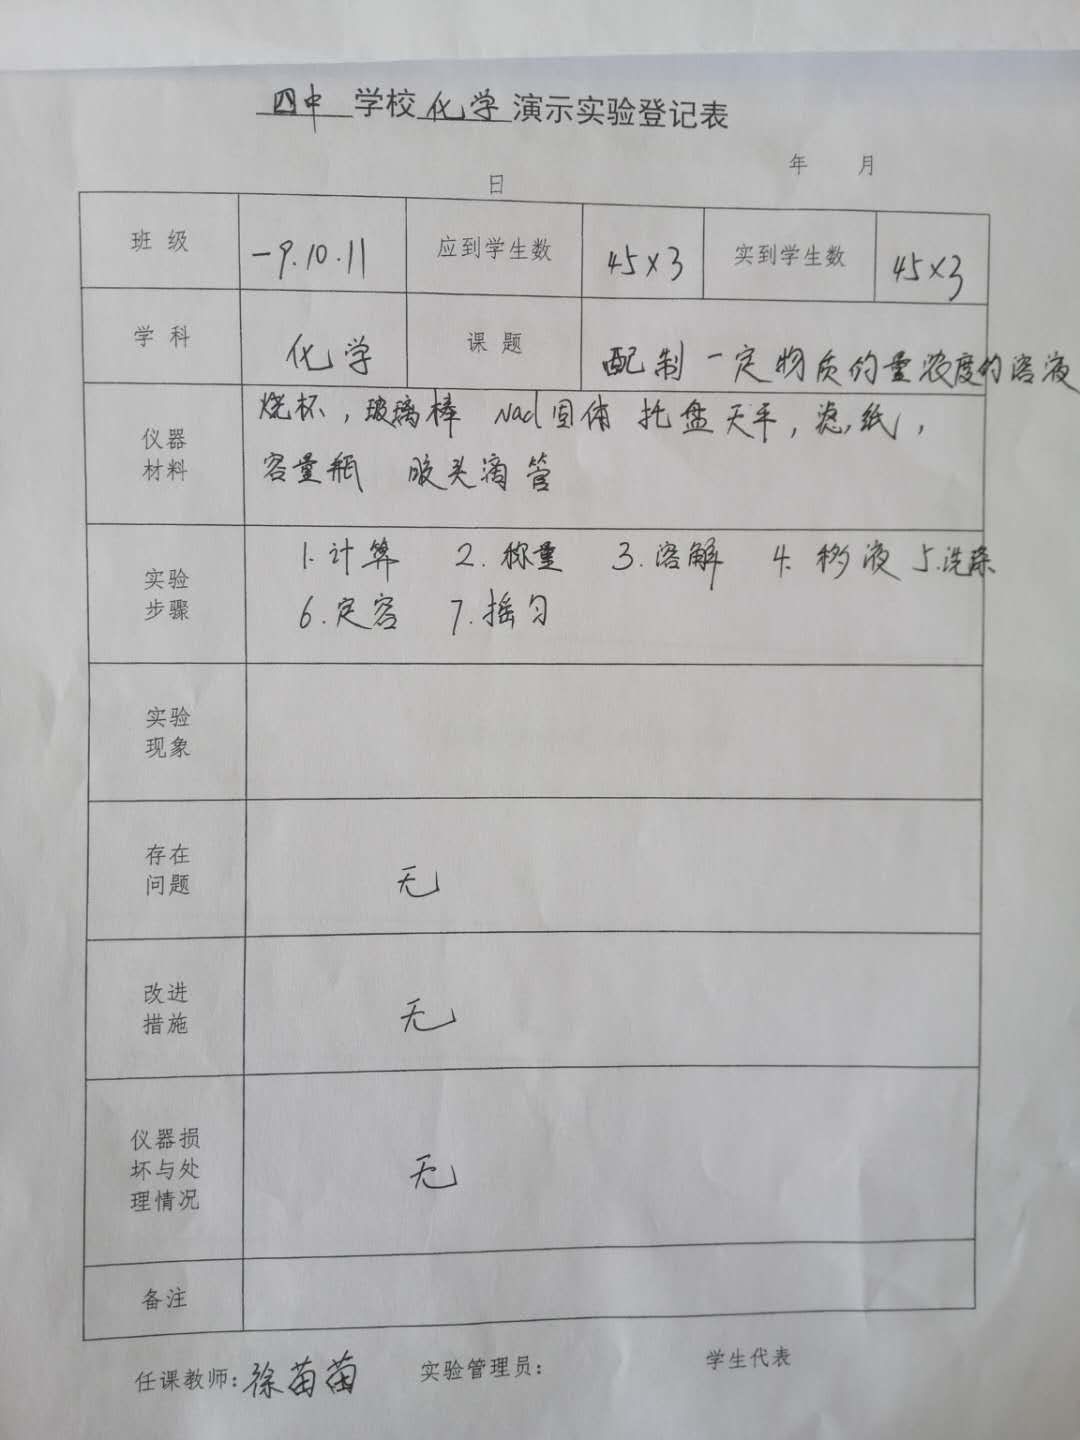 四中 学校 化学 演示实验登记表
年 月
日
班 级 一9.10.11 应到学生数 45×3 实到学生数 45×3
学 科 化学 课 题 配制一定物质的量浓度的溶液
仪器
材料
烧杯，玻璃棒 Nacl固体 托盘天平，滤纸，
容量瓶 胶头滴管
实验
步骤
1.计算 2.称量 3.溶解 4.移液 5.洗涤
6.定容 7.摇匀
实验
现象
存在
问题
无
改进
措施
无
仪器损
坏与处
理情况
无
备注
任课教师：徐苗苗 实验管理员： 学生代表